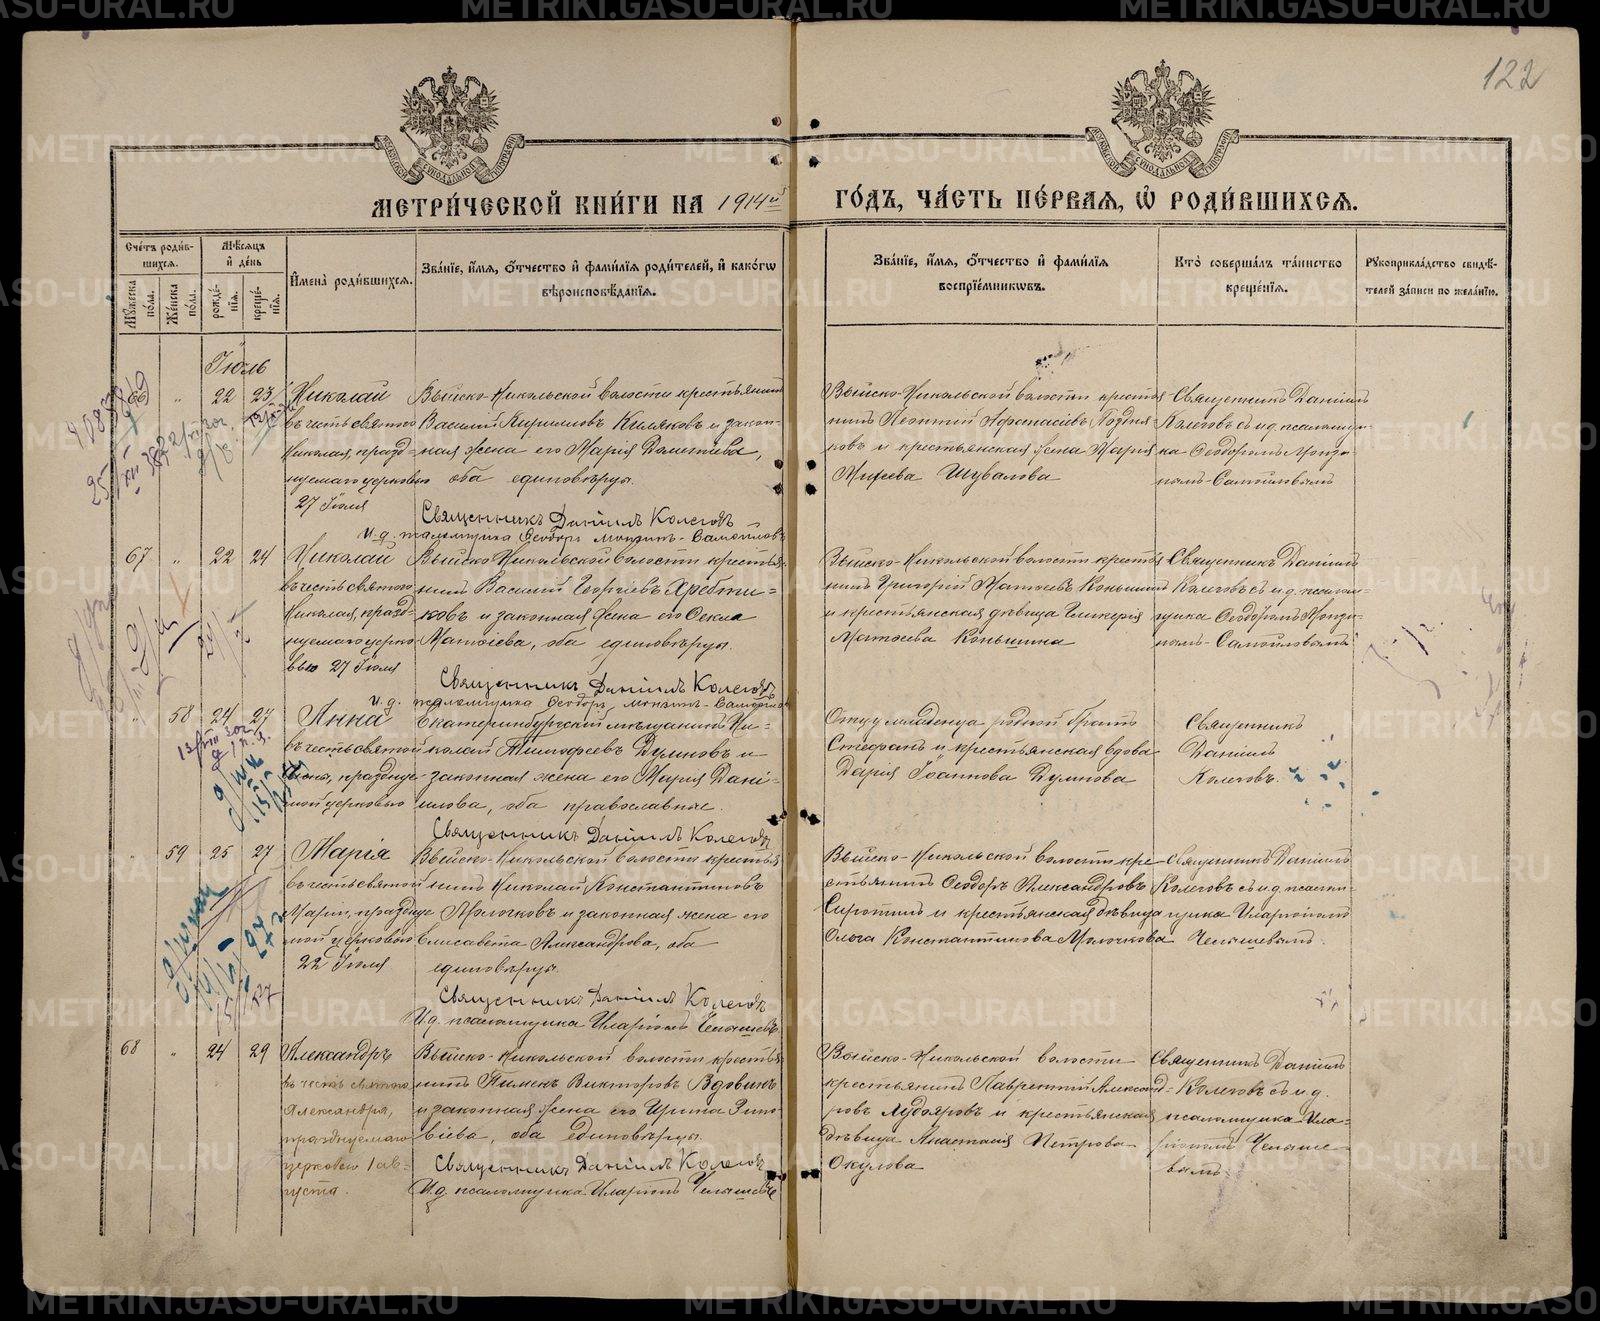 122
МОСКОВСКОЙ СѴНОДАЛЬНОЙ ТИПОГРАФІИ
МОСКОВСКОЙ СѴНОДАЛЬНОЙ ТИПОГРАФІИ
МЕТРИ́ЧЕСКОЙ КНИ́ГИ НА 1914й ГО́ДЪ, ЧА́СТЬ ПЕ́РВАЯ, Ѽ РОДИ́ВШИХСЯ.
Сче́тъ роди́вшихся.
Му́жеска по́ла.
Же́нска по́ла.
Мѣ́сяцъ и де́нь
рожде́нія.
креще́нія.
И҆мена̀ роди́вшихся.
Зва́нїе, и҆́мя, ѻ҆́тчество и҆ фами́лїя роди́телей, и҆ како́гѡ вѣроисповѣ́данїя.
Зва́нїе, и҆́мя, ѻ҆́тчество и҆ фами́лїя воспрїе́мникѡвъ.
Кто̀ соверша́лъ та́инство креще́нїя.
Рꙋкоприкла́дство свидѣ́телей за́писи по жела́нїю.
Іюль
66 " 22 23
Николай
въ честь святого
Николая, празд-
нуемаго церковью
27 Іюля
Выйско-Никольской волости крестьянинъ
Василій Кирилловъ Кимяковъ и закон-
ная жена его Марія
оба единовѣрцы.
Священникъ Даніилъ Колеговъ
И.д. псаломщика Ѳеодоръ Мокзинъ-Самойловъ
Выйско-Никольской волости крестья-
нинъ Леонтій Аѳанасіевъ Поздня-
ковъ и крестьянская жена Марія
Михеева Шувалова
Священникъ Даніилъ
Колеговъ съ и.д. псаломщи-
ка Ѳеодоромъ
номъ-Самойловымъ
67 " 22 24
Николай
въ честь святого
Николая, празд-
нуемаго церко-
вью 27 Іюля
Выйско-Никольской волости крестья-
нинъ Василій Георгіевъ Хребти-
ковъ и законная жена его Ѳекла
Матѳіева, оба единовѣрцы.
Священникъ Даніилъ Колеговъ
И.д. псаломщика Ѳеодоръ Мокзинъ-Самойловъ
Выйско-Никольской волости крестья-
нинъ Григорій Матѳеевъ Коньшинъ
и крестьянская дѣвица Гликерія
Матѳеева Коньшина
Священникъ Даніилъ
Колеговъ съ и.д. псалом-
щика Ѳеодоромъ
номъ-Самойловымъ
" 58 24 27
Анна
въ честь святой
Анны, праздue-
мой церковью
Екатеринбургскій мѣщанинъ Ни-
колай Тимоѳеевъ Думновъ и
законная жена его Марія Дані-
илова, оба православные.
Священникъ Даніилъ Колеговъ
Отцу младенца родной братъ
Стефанъ и крестьянская вдова
Дарія Іоаннова Думнова
Священникъ
Даніилъ
Колеговъ.
" 59 25 27
Марія
въ честь святой
Маріи, праздnuе-
мой церковью
22 Іюля
Выйско-Никольской волости крестья-
нинъ Николай Константиновъ
Молочковъ и законная жена его
Елисавета Александрова, оба
единовѣрцы.
Священникъ Даніилъ Колеговъ
И.д. псаломщика Иларіонъ Челышевъ
Выйско-Никольской волости кре-
стьянинъ Ѳеодоръ Александровъ
Сиротинъ и крестьянская дѣвица
Ольга Константинова Молочкова
Священникъ Даніилъ
Колеговъ съ и.д. псалом-
щика Иларіономъ
Челышевымъ.
68 " 24 29
Александръ
въ честь святого
Александра,
празднуемаго
церковью 1 ав-
густа.
Выйско-Никольской волости крестья-
нинъ Пименъ Викторовъ Вдовинъ
и законная жена его Ирина Зино-
віева, оба единовѣрцы.
Священникъ Даніилъ Колеговъ
И.д. псаломщика Иларіонъ Челышевъ
Выйско-Никольской волости
крестьянинъ Лаврентій Александ-
ровъ Лудояровъ и крестьянская
дѣвица Анастасія Петрова
Окулова
Священникъ Даніилъ
Колеговъ съ и.д.
псаломщика Ила-
ріономъ Челыше-
вымъ
METRIKI.GASO-URAL.RU